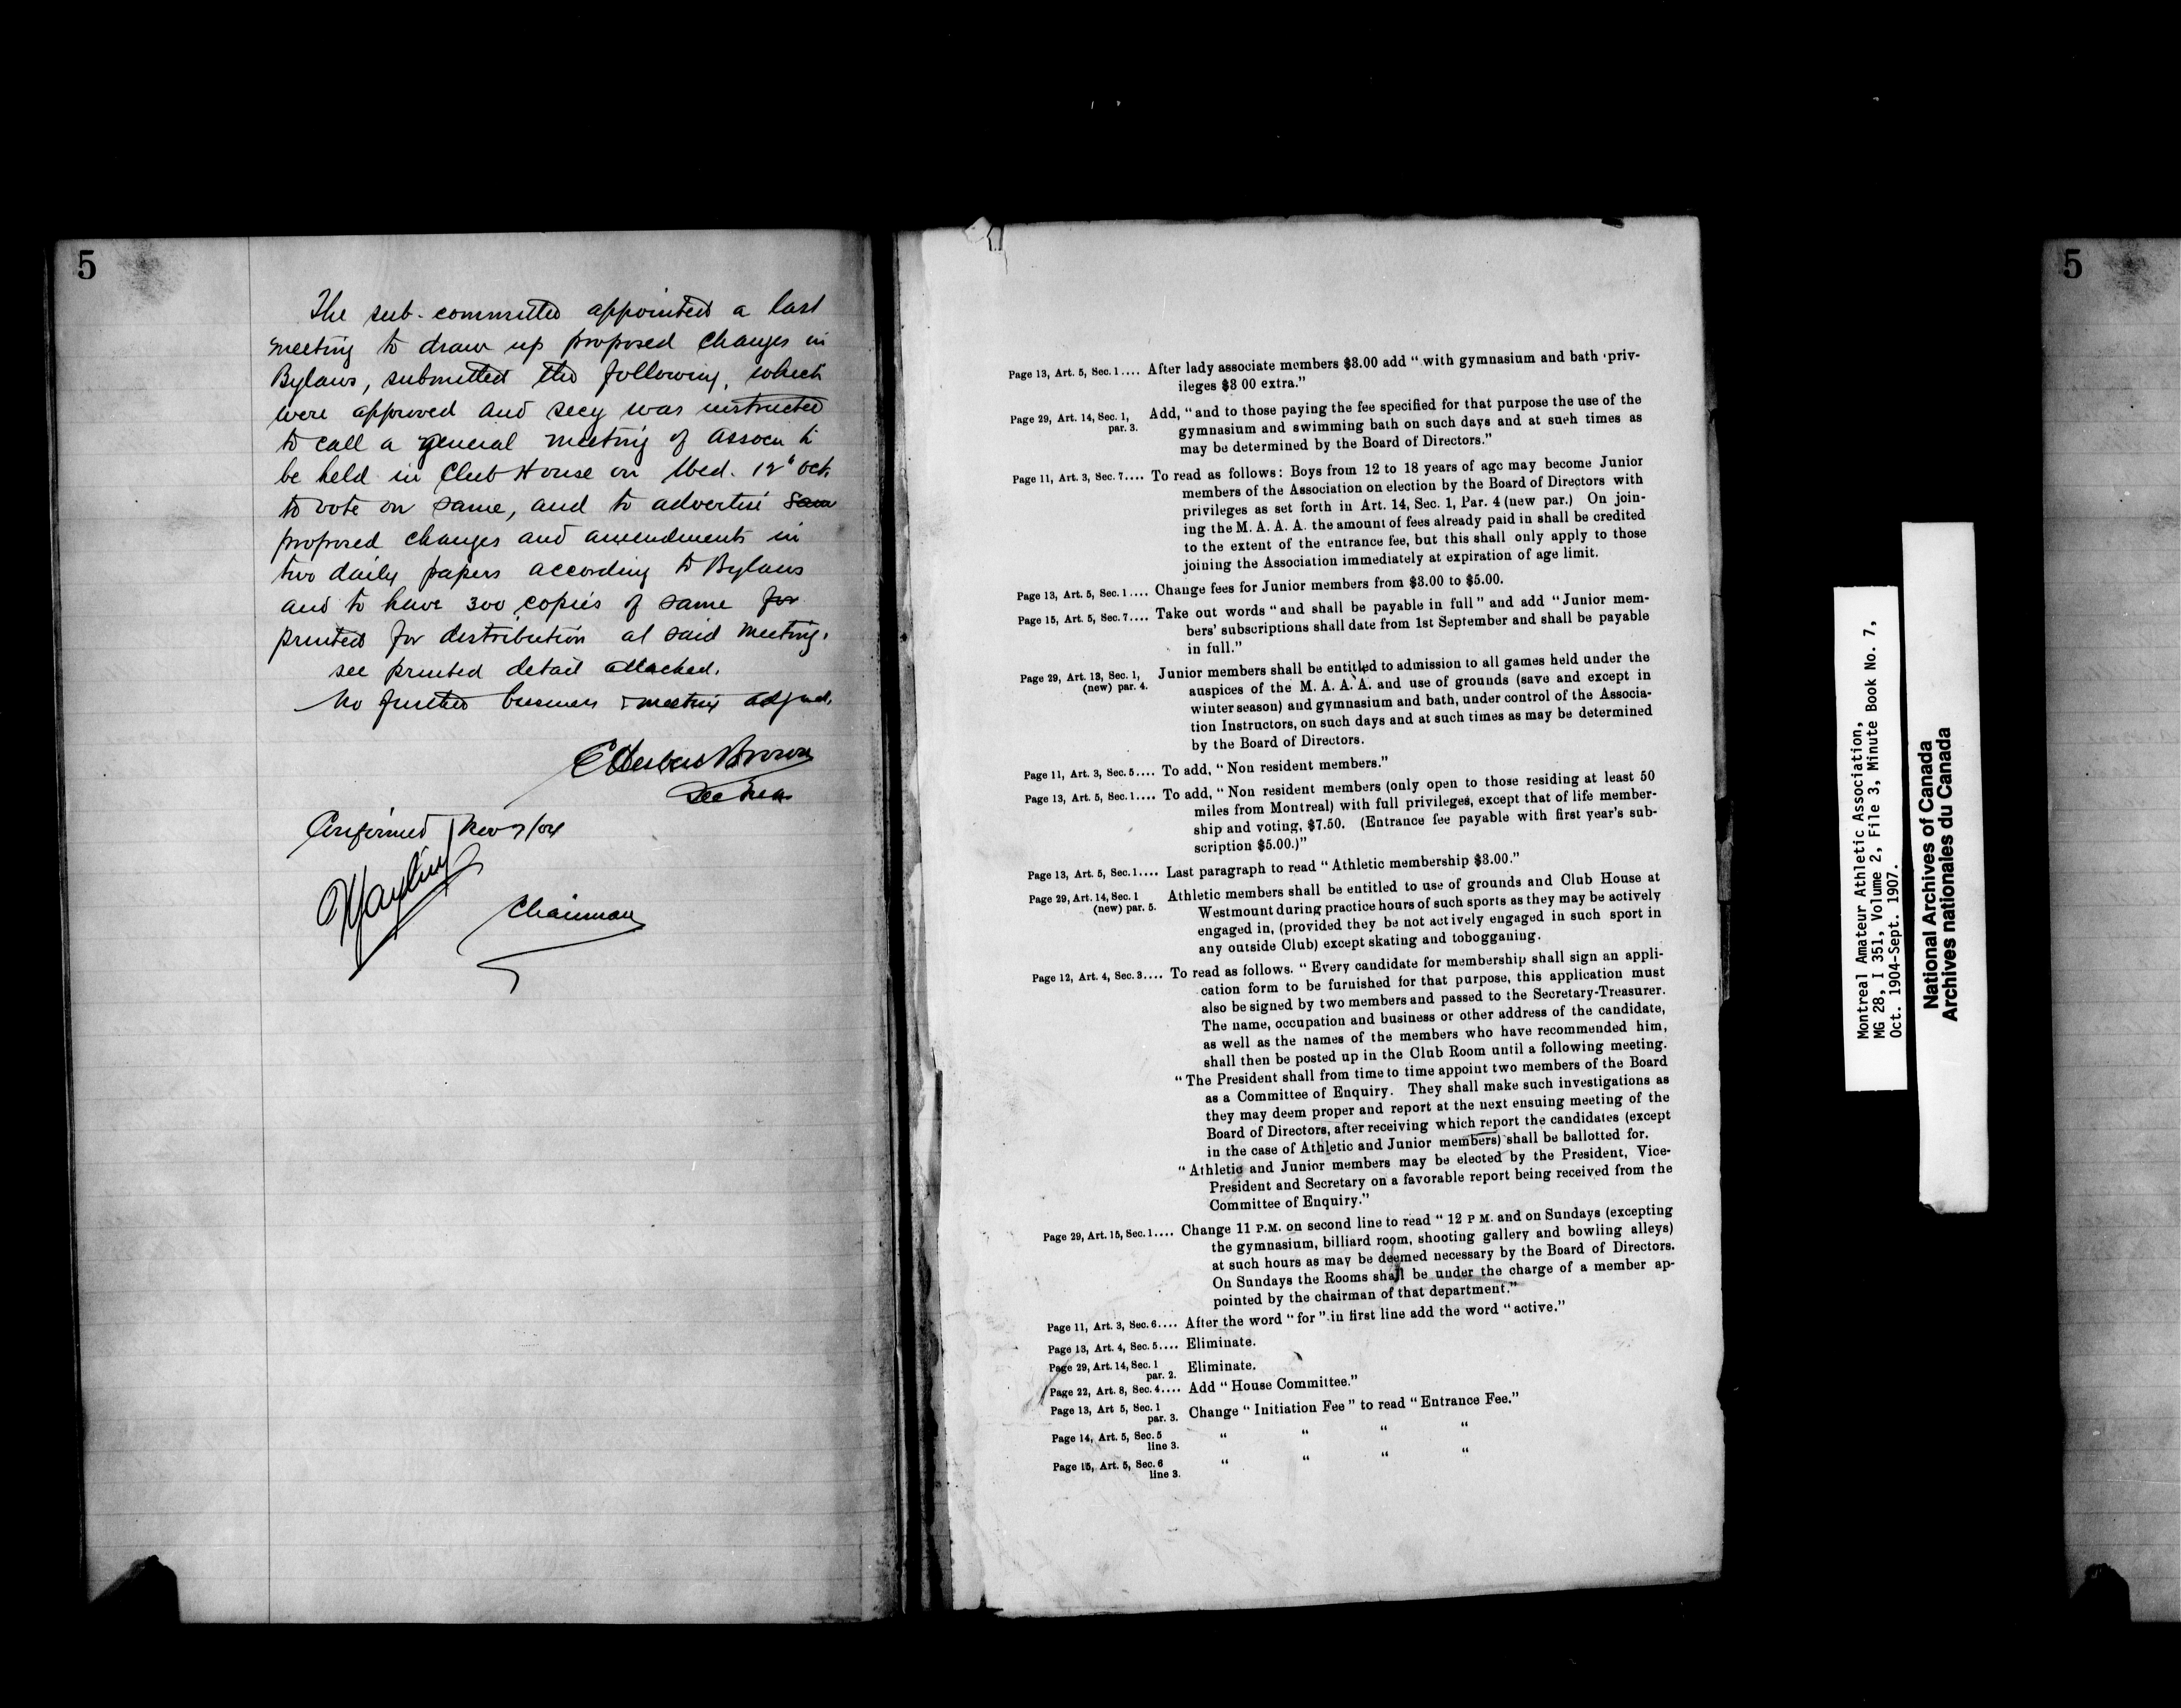 5
The sub-committee appointed a last
meeting to draw up proposed changes in
Bylaws, submitted the following, which
were approved and secy was instructed
to call a general meeting of Assocn to
be held in Club House on Wed. 12th Oct.
to vote on same, and to advertise
proposed changes and amendments in
two daily papers according to Bylaws
and to have 300 copies of same for
printed for distribution at said meeting.
see printed detail attached.
No further business & meeting adjnd.
E Herbert Brown
Sec Treas
Confirmed Nov 7/04
Chairman
Page 13, Art. 5, Sec. 1.... After lady associate members $3.00 add “with gymnasium and bath priv-
ileges $3 00 extra.”
Page 29, Art. 14, Sec. 1, Add, “and to those paying the fee specified for that purpose the use of the
par. 3. gymnasium and swimming bath on such days and at such times as
may be determined by the Board of Directors.”
Page 11, Art. 3, Sec. 7.... To read as follows: Boys from 12 to 18 years of age may become Junior
members of the Association on election by the Board of Directors with
privileges as set forth in Art. 14, Sec. 1, Par. 4 (new par.) On join-
ing the M. A. A. A. the amount of fees already paid in shall be credited
to the extent of the entrance fee, but this shall only apply to those
joining the Association immediately at expiration of age limit.
Page 13, Art. 5, Sec. 1.... Change fees for Junior members from $3.00 to $5.00.
Page 15, Art. 5, Sec. 7.... Take out words “and shall be payable in full” and add “Junior mem-
bers’ subscriptions shall date from 1st September and shall be payable
in full.”
Page 29, Art. 13, Sec. 1, Junior members shall be entitled to admission to all games held under the
(new) par. 4. auspices of the M. A. A. A. and use of grounds (save and except in
winter season) and gymnasium and bath, under control of the Associa-
tion Instructors, on such days and at such times as may be determined
by the Board of Directors.
Page 11, Art. 3, Sec. 5.... To add, “Non resident members.”
Page 13, Art. 5, Sec. 1.... To add, “Non resident members (only open to those residing at least 50
miles from Montreal) with full privileges, except that of life member-
ship and voting, $7.50. (Entrance fee payable with first year’s sub-
scription $5.00.)”
Page 13, Art. 5, Sec. 1.... Last paragraph to read “Athletic membership $3.00.”
Page 29, Art. 14, Sec. 1 Athletic members shall be entitled to use of grounds and Club House at
(new) par. 5. Westmount during practice hours of such sports as they may be actively
engaged in, (provided they be not actively engaged in such sport in
any outside Club) except skating and tobogganing.
Page 12, Art. 4, Sec. 3.... To read as follows. “Every candidate for membership shall sign an appli-
cation form to be furnished for that purpose, this application must
also be signed by two members and passed to the Secretary-Treasurer.
The name, occupation and business or other address of the candidate,
as well as the names of the members who have recommended him,
shall then be posted up in the Club Room until a following meeting.
“The President shall from time to time appoint two members of the Board
as a Committee of Enquiry. They shall make such investigations as
they may deem proper and report at the next ensuing meeting of the
Board of Directors, after receiving which report the candidates (except
in the case of Athletic and Junior members) shall be ballotted for.
“Athletic and Junior members may be elected by the President, Vice-
President and Secretary on a favorable report being received from the
Committee of Enquiry.”
Page 29, Art. 15, Sec. 1.... Change 11 P.M. on second line to read “12 P M. and on Sundays (excepting
the gymnasium, billiard room, shooting gallery and bowling alleys)
at such hours as may be deemed necessary by the Board of Directors.
On Sundays the Rooms shall be under the charge of a member ap-
pointed by the chairman of that department.”
Page 11, Art. 3, Sec. 6.... After the word “for” in first line add the word “active.”
Page 13, Art. 4, Sec. 5.... Eliminate.
Page 29, Art. 14, Sec. 1 Eliminate.
par. 2.
Page 22, Art. 8, Sec. 4.... Add “House Committee.”
Page 13, Art 5, Sec. 1 Change “Initiation Fee” to read “Entrance Fee.”
par. 3.
Page 14, Art. 5, Sec. 5 “ “ “ “
line 3.
Page 15, Art. 5, Sec. 6 “ “ “ “
line 3.
Montreal Amateur Athletic Association,
MG 28, I 351, Volume 2, File 3, Minute Book No. 7,
Oct. 1904-Sept. 1907.
National Archives of Canada
Archives nationales du Canada
5